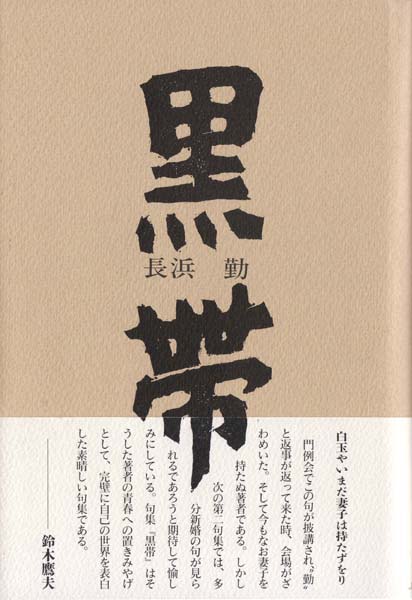 黒帯
長浜 勤
白玉やいまだ妻子は持たずをり
門例会でこの句が披講され〝勤〟
と返事が返って来た時、会場がざ
わめいた。そして今もなお妻子を
持たぬ著者である。しかし
次の第二句集では、多
分新婚の句が見ら
れるであろうと期待して愉し
みにしている。句集『黒帯』はそ
うした著者の青春への置きみやげ
として、完璧に自己の世界を表白
した素晴しい句集である。
――鈴木鷹夫